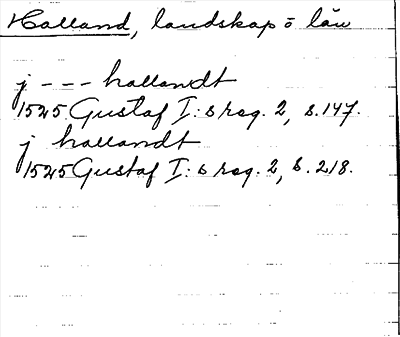 Halland, landskap o län
j --- hallandt
1525 Gustaf I:s reg. 2, s. 147.
j hallandt
1525 Gustaf I:s reg. 2, s. 218.